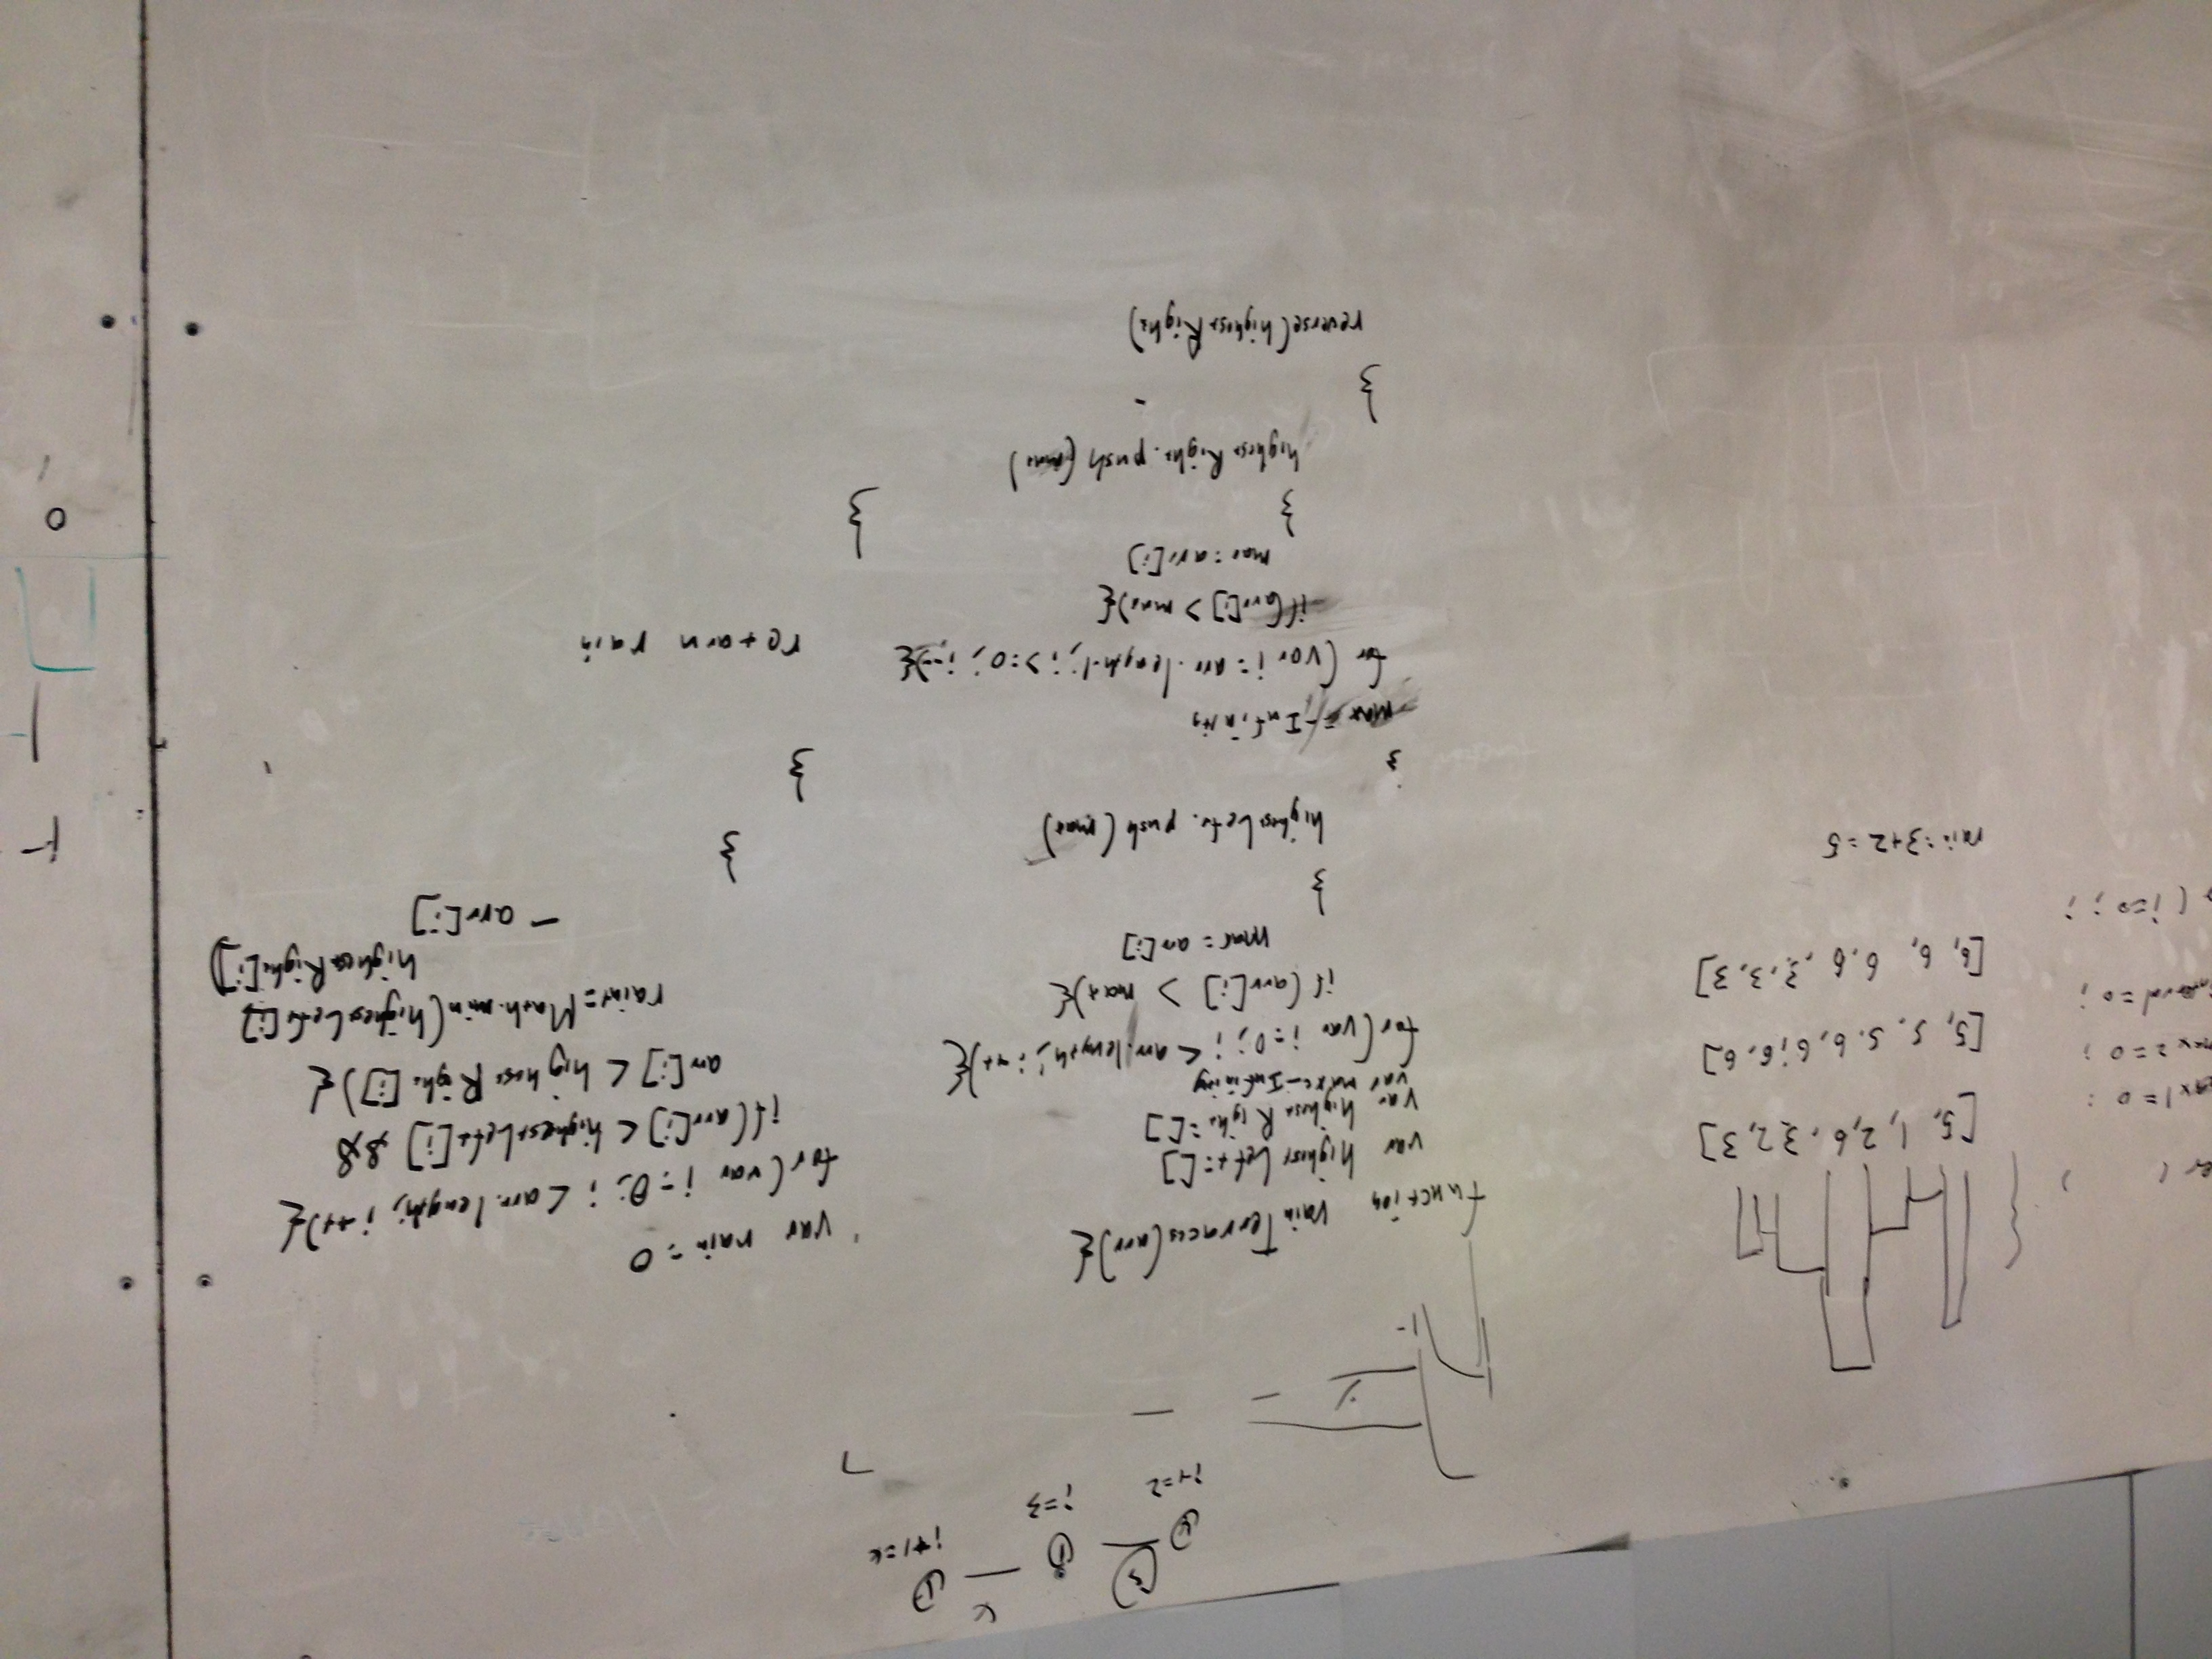 i-1=2
i=3
i+1=4
ax1=0;
max2=0;
interval=0;
(i=0; i
[5, 1, 2, 6, 3, 2, 3]
[5, 5, 5, 6, 6, 6, 6]
[6, 6, 6, 6, 3, 3, 3]
rain=3+2=5
function rainTerraces(arr){
var highestLeft=[]
var highestRight=[]
var max=-Infinity
for(var i=0; i<arr.length; i++){
if(arr[i] > max){
max=arr[i]
}
highestLeft.push(max)
}
max=-Infinity
for (var i=arr.length-1; i>=0; i--){
if(arr[i] > max){
max=arr[i]
}
highestRight.push(max)
}
reverse(highestRight)
var rain=0
for(var i=0; i<arr.length; i++){
if(arr[i] < highestLeft[i] &&
arr[i] < highestRight[i]){
rain+=Math.min(highestLeft[i],
highestRight[i])
- arr[i]
}
}
return rain
}
0